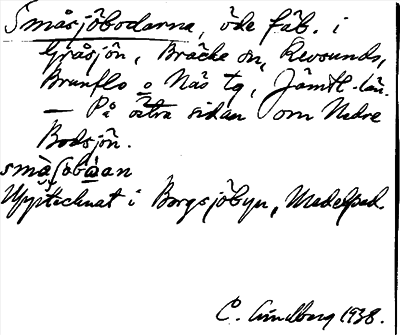 Småsjöbodarna, öde fäb. i
Gråsjön, Bräcke sn, Revsunds,
Brunflo o Näs tg, Jämtl. län.
— På östra sidan om Nedre
Bodsjön.
Upptecknat i Borgsjöbyn, Medelpad.
C. Lindberg 1938.